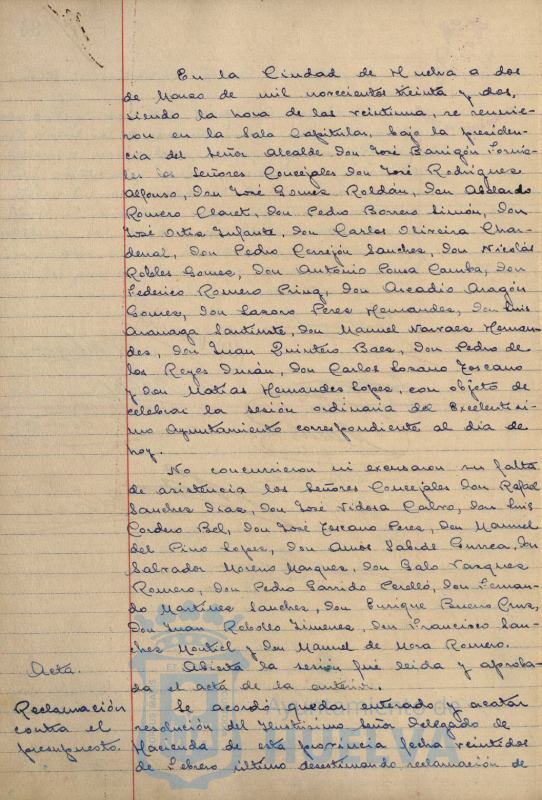 En la Ciudad de Huelva a dos
de Marzo de mil novecientos treinta y dos,
siendo la hora de las veintiuna, se reunie-
ron en la Sala Capitular, bajo la presiden-
cia del Señor Alcalde Don José Barrigón Fornie-
les los Señores Concejales Don José Rodriguez
Alfonso, Don José Gomez Roldán, Don Abelardo
Romero Claret, Don Pedro Borrero Limón, Don
José Ortiz Infante, Don Carlos Oliveira Char-
denal, Don Pedro Cerrejón Sanchez, Don Nicolás
Robles Gomez, Don Antonio Pousa Camba, Don
Federico Romero Pring, Don Arcadio Aragón
Gomez, Don Lazaro Perez Hernandez, Don Luis
Aramaga Santirste, Don Manuel Narvaez Hernan-
dez, Don Juan Quintero Baez, Don Pedro de
los Reyes Durán, Don Carlos Lozano Toscano
y Don Matías Hernandez Lopez, con objeto de
celebrar la sesión ordinaria del Excelentisi-
mo Ayuntamiento correspondiente al dia de
hoy.
No concurrieron ni excusaron su falta
de asistencia los Señores Concejales Don Rafael
Sanchez Diaz, Don José Vidosa Calvo, Don Luis
Cordero Bel, Don José Toscano Perez, Don Manuel
del Pino Lopez, Don Amós Sabrás Gurrea, Don
Salvador Moreno Marquez, Don Galo Vazquez
Romero, Don Pedro Garrido Perelló, Don Fernan-
do Martínez Sanchez, Don Enrique Bueno Cruz,
Don Juan Rebollo Jimenez, Don Francisco San-
chez Montiel y Don Manuel de Mora Romero.
Acta. Abierta la sesión fué leida y aproba-
da el acta de la anterior.
Reclamación Se acordó quedar enterado y acatar
contra el resolución del Ilustrisimo Señor Delegado de
presupuesto. Hacienda de esta provincia fecha veintidos
de Febrero último desestimando reclamación de
HUELVA